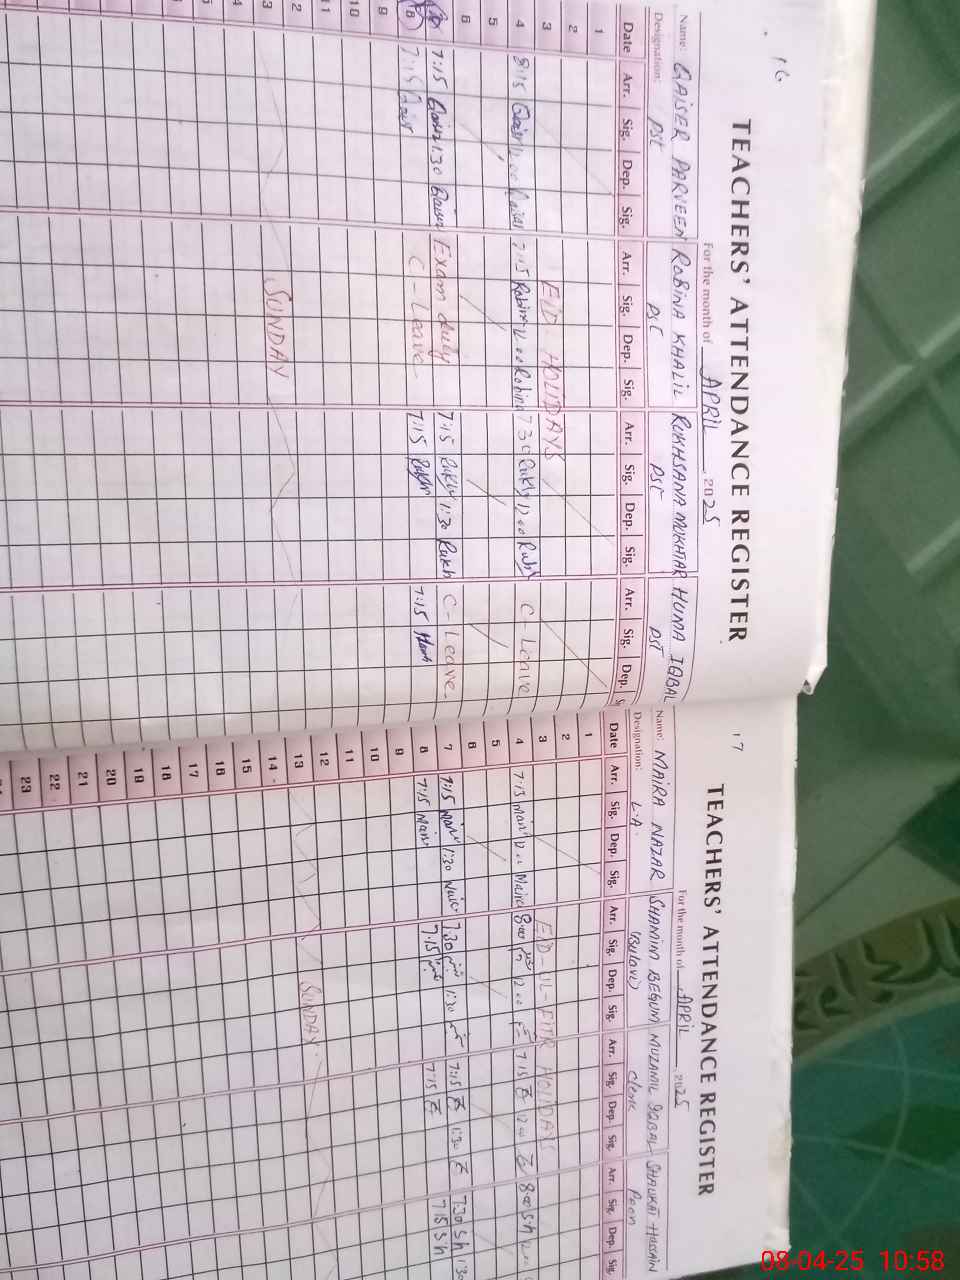 16
TEACHERS' ATTENDANCE REGISTER
For the month of APRIL 2025
Name: QAISER PARVEEN ROBINA KHALIL RUKHSANA MUKHTAR HUMA IQBAL
Designation: PST PST PST PST
Date Arr. Sig. Dep. Sig. Arr. Sig. Dep. Sig. Arr. Sig. Dep. Sig. Arr. Sig. Dep.
1
2
3 EID HOLIDAYS
4 8:15 12:00 7:15 Robina 12:00 Robina 7:30 Rukh 12:00 Rukh C-Leave
5
6
7:15 Qaiser 1:30 Qaiser Exam duty 7:15 Rukh 1:30 Rukh C-Leave
8 7:15 C-Leave 7:15 Rukh 7:15
9
10
11
2
3 SUNDAY
4
17
TEACHERS' ATTENDANCE REGISTER
For the month of APRIL 2025
Name: MAIRA NAZAR SHAMIM BEGUM MUZAMIL IQBAL SHAUKAT HUSSAIN
Designation: L.A. (Bulavi) Clerk Peon
Date Arr. Sig. Dep. Sig. Arr. Sig. Dep. Sig. Arr. Sig. Dep. Sig. Arr. Sig. Dep. Sig.
1
2
3 EID-UL-FITR HOLIDAYS
4 7:15 Maira 12:00 Maira 8:00 12:00 7:15 12:00 8:00 Sh
5
6
7 7:15 Maira 1:30 7:30 1:30 7:15 1:30 7:30 Sh 1:30
8 7:15 Maira 7:15 7:15 7:15 Sh
9
10
11
12
13 SUNDAY
14
15
16
17
18
19
20
21
22
23
08-04-25 10:58